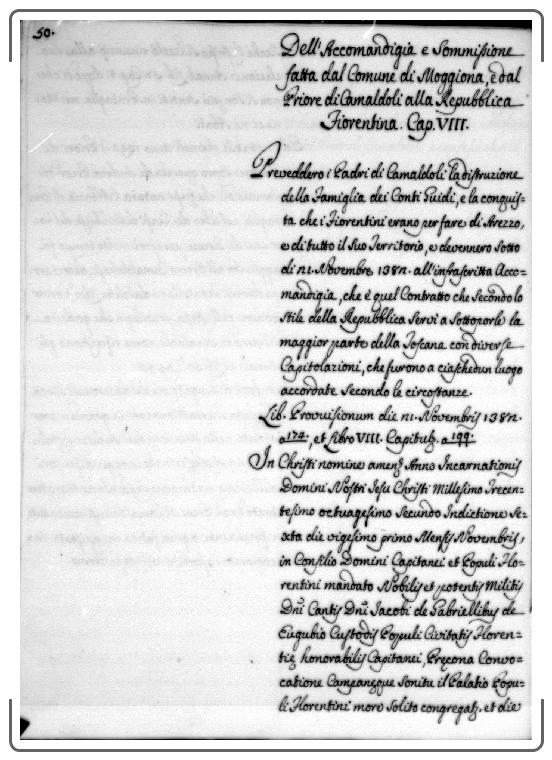 50.
Dell'Accomandigia e Sommissione
fatta dal Comune di Moggiona, e dal
Priore di Camaldoli alla Repubblica
Fiorentina. Cap. VIII.
Preveddero i Padri di Camaldoli la distruzione
della Famiglia dei Conti Guidi, e la conquis-
ta che i Fiorentini erano per fare di Arezzo,
e di tutto il suo Territorio, e devennero sotto
di 21. Novembre 1382. all'infrascritta Acco-
mandigia, che è quel Contratto che secondo lo
stile della Repubblica servì a sottoporle la
maggior parte della Toscana con diverse
Capitolazioni, che furono a ciaschedun luogo
accordate secondo le circostanze.
Lib. Provvisionum die 21. Novembris 1382.
a 174., et Libro VIII. Capitulʒ. a 199.
In Christi nomine amen. Anno Incarnationis
Domini Nostri Jesu Christi Millesimo Trecen-
tesimo octuagesimo secundo Indictione Se-
xta die vigesimo primo Mensis Novembris,
in Consilio Domini Capitanei et Populi Flo-
rentini mandato Nobilis et potentis Militis
Dñi Cantis Dñi Jacobi de Gabriellibus de
Eugubio Custodis Populi Civitatis Floren-
tię honorabilis Capitanei, Pręcona Convo-
catione Campanęque Sonitu i͂ Palatio Popu-
li Florentini more solito congregatʒ. et die